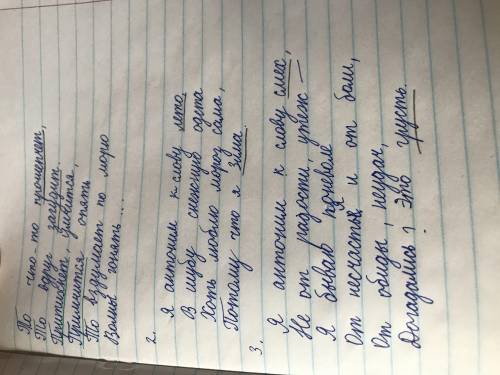 То что то прошепчет,
То вдруг загудит.
Притихнет, уймётся,
Примчится опять
То вздумает по морю
Волны гонять...
2. Я антоним к слову лето
В шубу снежную одета
Хоть люблю мороз сама,
Потому что я зима.
3. Я антоним к слову смех,
Не от радости, утех –
Я бываю поневоле
От несчастья и от боли,
От обиды, неудач,
Догадались? Это грусть.